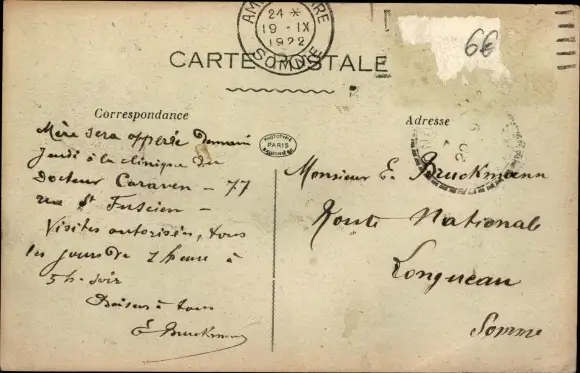 24 *
19 - IX
1922
SOMME
6€
CARTE POSTALE
Correspondance
Adresse
Mère sera opérée Demain
Jeudi à la clinique du
Docteur Caraven - 77
rue St Fuscien -
Visites autorisées, tous
les jours de 1 heure à
5 h. soir
Baisers à tous
E Bruckmann
PHOTOTYPIE
PARIS
Monsieur E. Bruckmann
Route National
Longueau
Somme